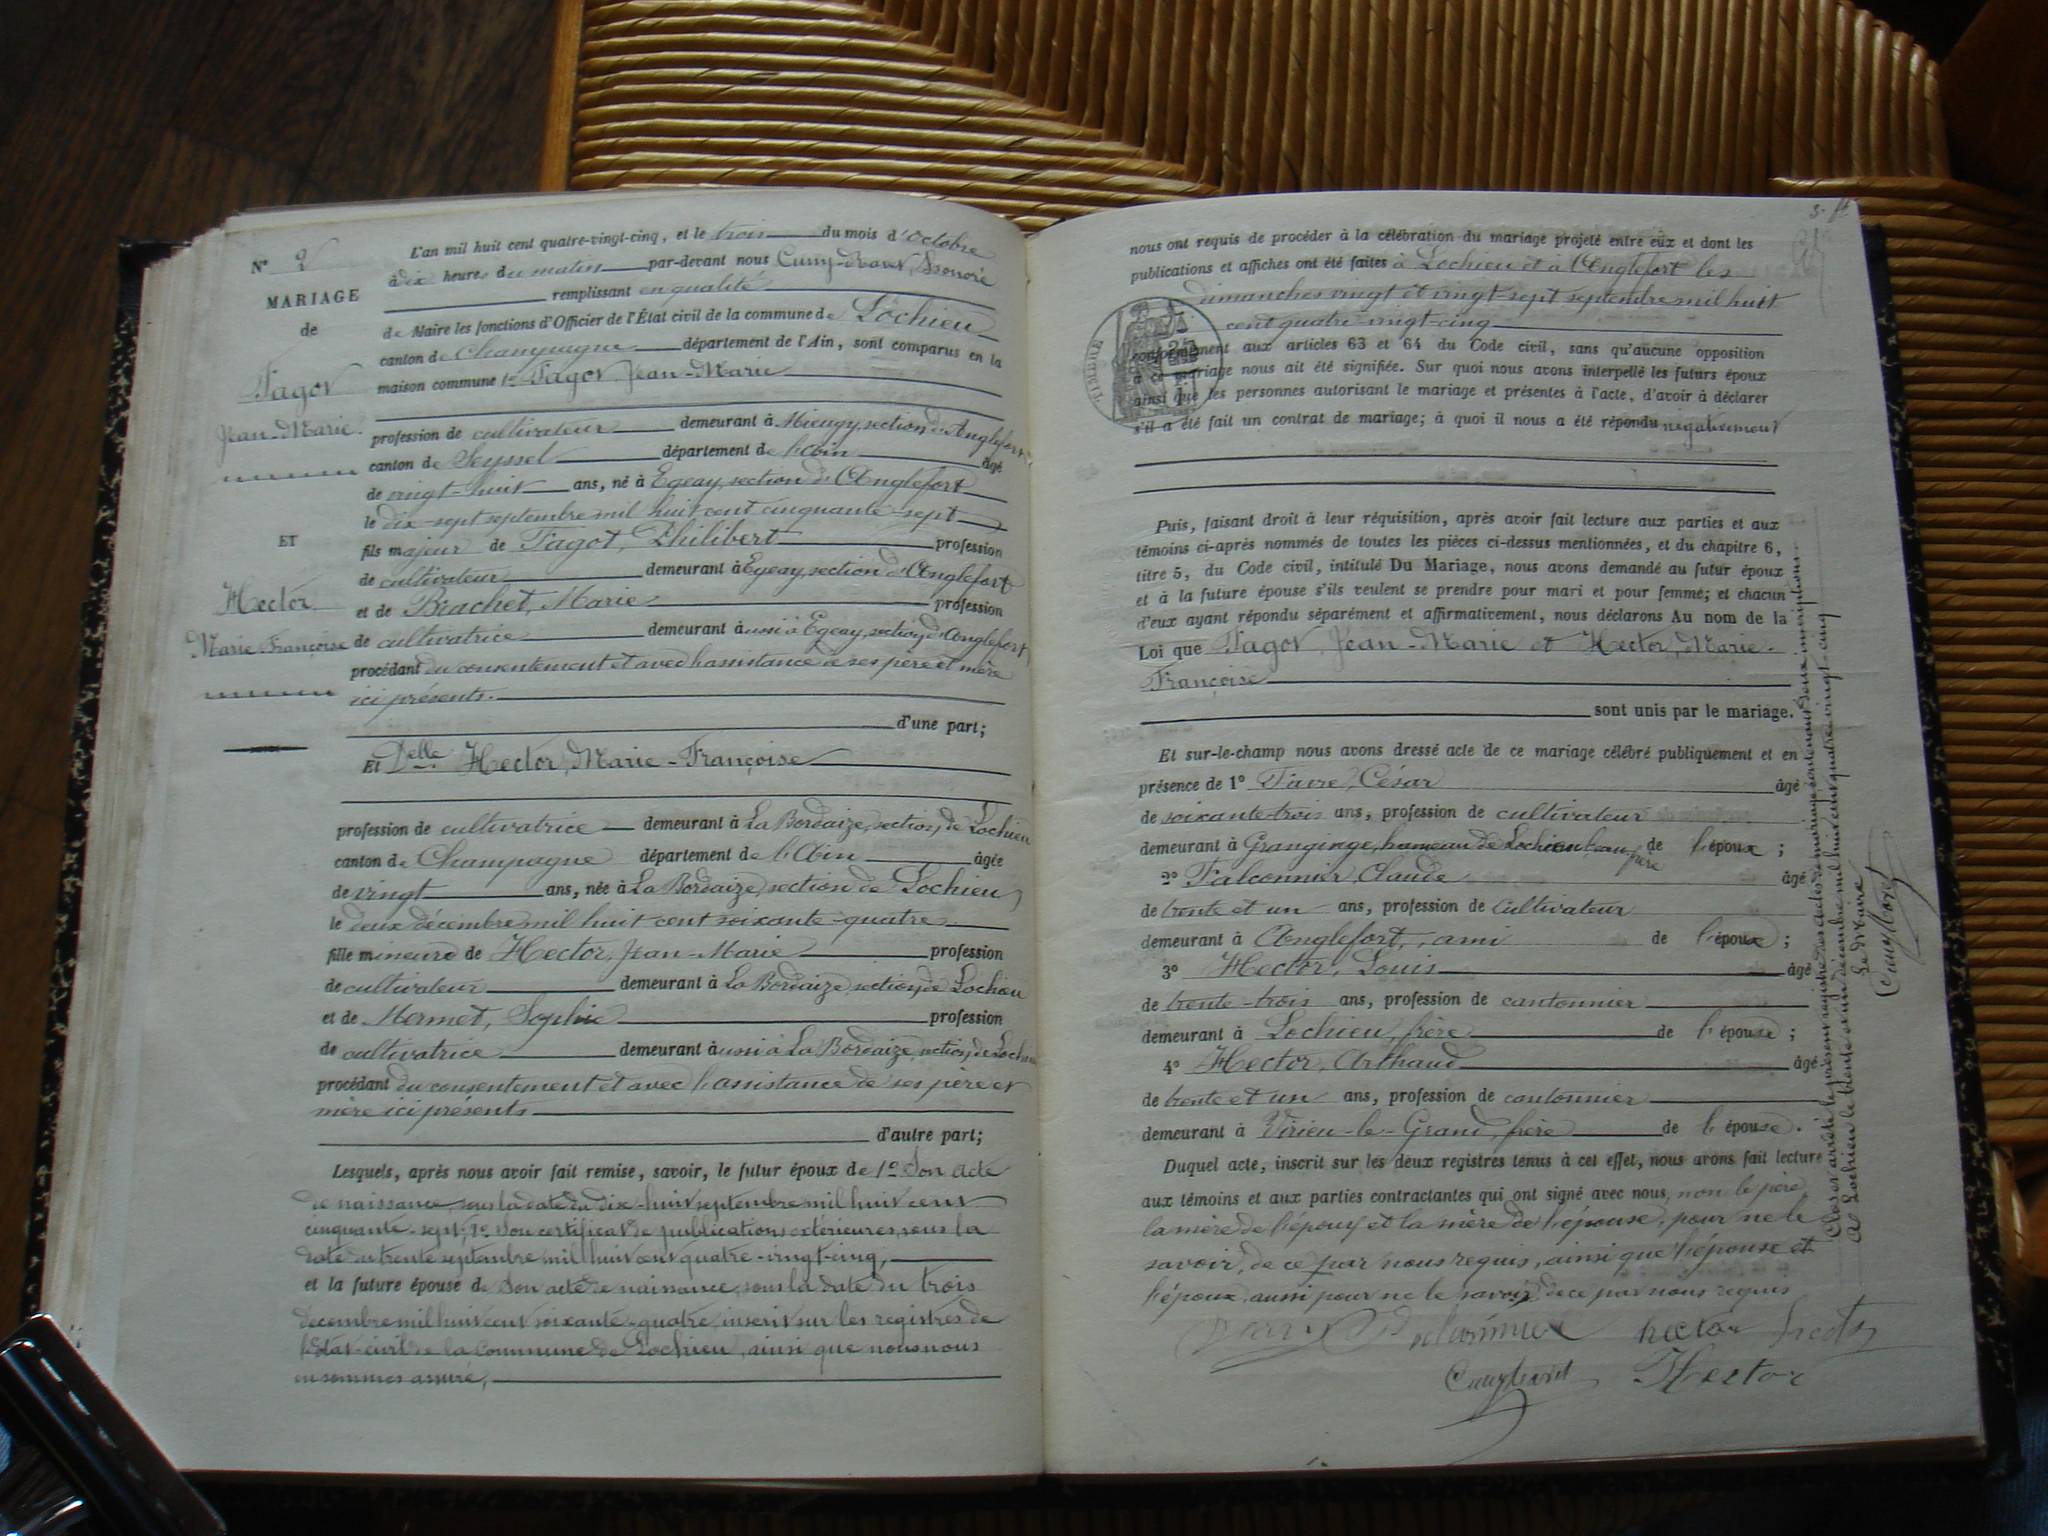 N° 2
MARIAGE
de
Fagot
Jean-Marie
ET
Hector
Marie Françoise
L'an mil huit cent quatre-vingt-cinq, et le trois du mois d'octobre
à dix heures du matin par-devant nous Cuny-Ravet,
remplissant en qualité
de Maire les fonctions d'Officier de l'État civil de la commune de Lochieu
canton de Champagne département de l'Ain, sont comparus en la
maison commune 1° Fagot Jean-Marie
profession de cultivateur demeurant à Mieugy, section d'Anglefort
canton de Seyssel département de l'Ain âgé
de vingt-huit ans, né à Egeay, section d'Anglefort
le dix-sept septembre mil huit cent cinquante-sept
fils majeur de Fagot, Philibert profession
de cultivateur demeurant à Egeay, section d'Anglefort
et de Brachet, Marie profession
de cultivatrice demeurant aussi à Egeay, section d'Anglefort
procédant du consentement et avec l'assistance de ses père et mère
ici présents.
d'une part;
Et Delle Hector, Marie-Françoise
profession de cultivatrice demeurant à La Bordaize, section de Lochieu
canton de Champagne département de l'Ain âgée
de vingt ans, née à La Bordaize, section de Lochieu
le deux décembre mil huit cent soixante-quatre
fille mineure de Hector, Jean-Marie profession
de cultivateur demeurant à La Bordaize, section de Lochieu
et de Mermet, Sophie profession
de cultivatrice demeurant aussi à La Bordaize, section de Lochieu
procédant du consentement et avec l'assistance de ses père et
mère ici présents
d'autre part;
Lesquels, après nous avoir fait remise, savoir, le futur époux de 1° Son acte
de naissance, sous la date du dix-huit septembre mil huit cent
cinquante-sept; 2° Son certificat de publications extérieures, sous la
date du trente septembre mil huit cent quatre-vingt-cinq,
et la future épouse de Son acte de naissance, sous la date du trois
décembre mil huit cent soixante-quatre, inscrit sur les registres de
l'Etat-civil de la Commune de Lochieu, ainsi que nous nous
en sommes assuré,
nous ont requis de procéder à la célébration du mariage projeté entre eux et dont les
publications et affiches ont été faites à Lochieu et à Anglefort les
dimanches vingt et vingt-sept septembre mil huit
cent quatre-vingt-cinq
TIMBRE
conformément aux articles 63 et 64 du Code civil, sans qu'aucune opposition
à ce mariage nous ait été signifiée. Sur quoi nous avons interpellé les futurs époux
ainsi que les personnes autorisant le mariage et présentes à l'acte, d'avoir à déclarer
s'il a été fait un contrat de mariage; à quoi il nous a été répondu négativement
Puis, faisant droit à leur réquisition, après avoir fait lecture aux parties et aux
témoins ci-après nommés de toutes les pièces ci-dessus mentionnées, et du chapitre 6,
titre 5, du Code civil, intitulé Du Mariage, nous avons demandé au futur époux
et à la future épouse s'ils veulent se prendre pour mari et pour femme; et chacun
d'eux ayant répondu séparément et affirmativement, nous déclarons Au nom de la
Loi que Fagot, Jean-Marie et Hector, Marie-
Françoise
sont unis par le mariage.
Et sur-le-champ nous avons dressé acte de ce mariage célébré publiquement et en
présence de 1° Favre, César âgé
de soixante-trois ans, profession de cultivateur
demeurant à Granginge, hameau de Lochieu beau père de l'époux;
2° Falconnier, Claude âgé
de trente et un ans, profession de cultivateur
demeurant à Anglefort, ami de l'époux;
3° Hector, Louis âgé
de trente-trois ans, profession de cantonnier
demeurant à Lochieu, frère de l'épouse;
4° Hector, Arthaud âgé
de trente et un ans, profession de cantonnier
demeurant à Virieu-le-Grand, frère de l'épouse.
Duquel acte, inscrit sur les deux registres tenus à cet effet, nous avons fait lecture
aux témoins et aux parties contractantes qui ont signé avec nous, non le père
la mère de l'époux et la mère de l'épouse, pour ne le
savoir, de ce par nous requis, ainsi que l'épouse et
l'époux aussi pour ne le savoir, de ce par nous requis
hector
Hector
Clos et arrêté le présent registre des actes de mariage, contenant deux inscriptions
à Lochieu le trente et un décembre mil huit cent quatre-vingt-cinq
Le Maire